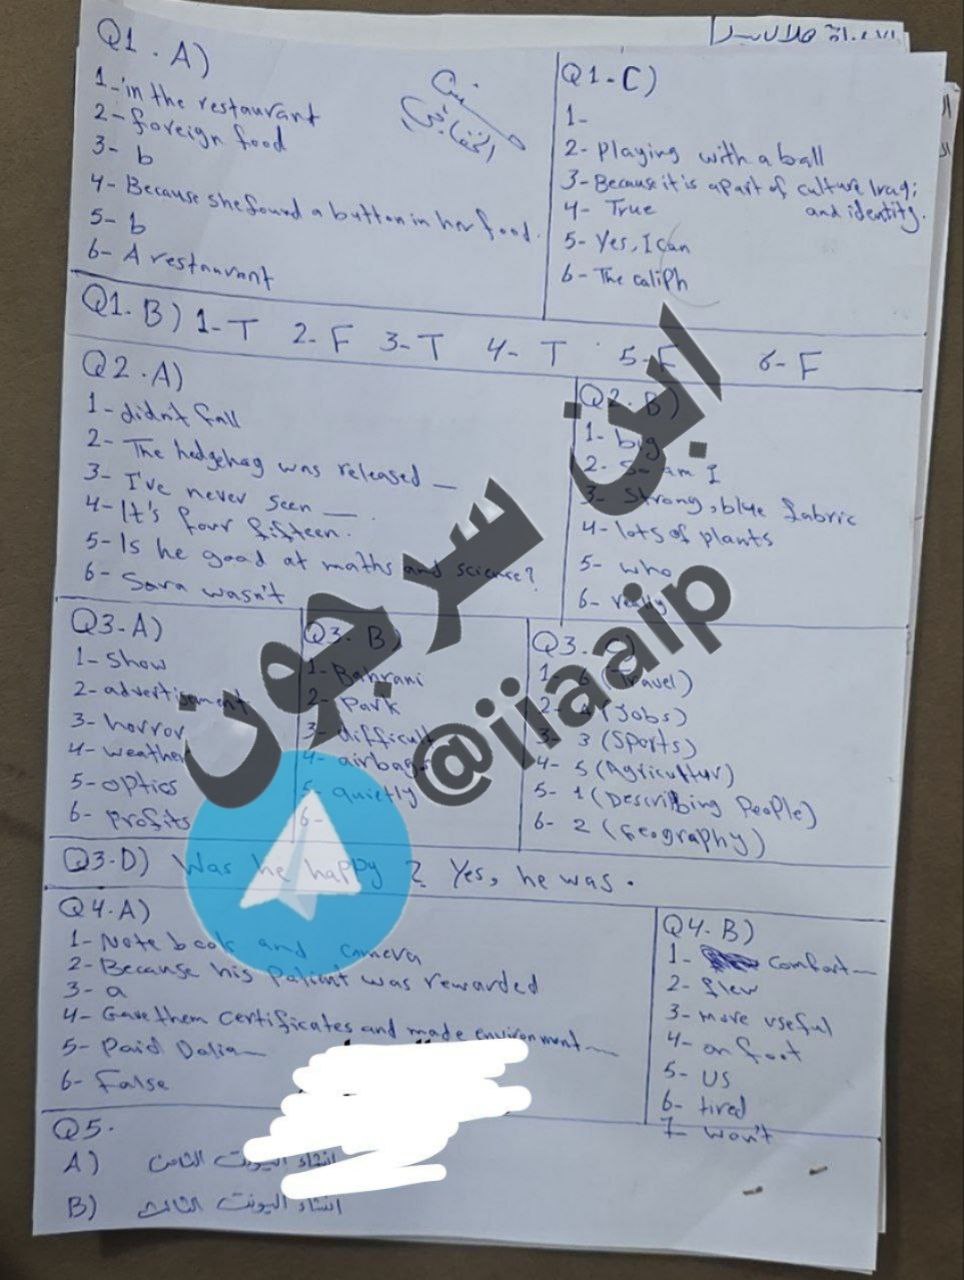 Q1. A)
1- in the restaurant
2- foreign food
3- b
4- Because she found a button in her food.
5- b
6- A restaurant
Q1-C)
1-
2- Playing with a ball
3- Because it is apart of culture Iraqi
and identity.
4- True
5- Yes, I can
6- The caliph
Q1. B) 1- T 2- F 3- T 4- T 5- F 6- F
Q2. A)
1- didn't fall
2- The hedgehog was released —
3- I've never seen —.
4- It's four fifteen.
5- Is he good at maths and science?
6- Sara wasn't
Q2. B)
1- big
2- So am I
3- Strong, blue fabric
4- lots of plants
5- who
6- really
ابن سرجون
@iiaaip
Q3-A)
1- Show
2- advertisement
3- horror
4- weather
5- optics
6- profits
Q3. B)
1- Bahrani
2- Park
3- difficult
4- airbags
5- quietly
6-
Q3. C)
1- 6 (Travel)
2- 4 (Jobs)
3- 3 (Sports)
4- 5 (Agricultur)
5- 1 (Describing People)
6- 2 (Geography)
Q3-D) Was he happy? Yes, he was.
Q4. A)
1- Note book and camera
2- Because his Patient was rewarded
3- a
4- Gave them certificates and made environment —
5- Paid Dalia —
6- False
Q4. B)
1- comfort—
2- flew
3- more useful
4- on foot
5- us
6- tired
7- won't
Q5.
A) انشاء اليونت الثامن
B) انشاء اليونت الثالث